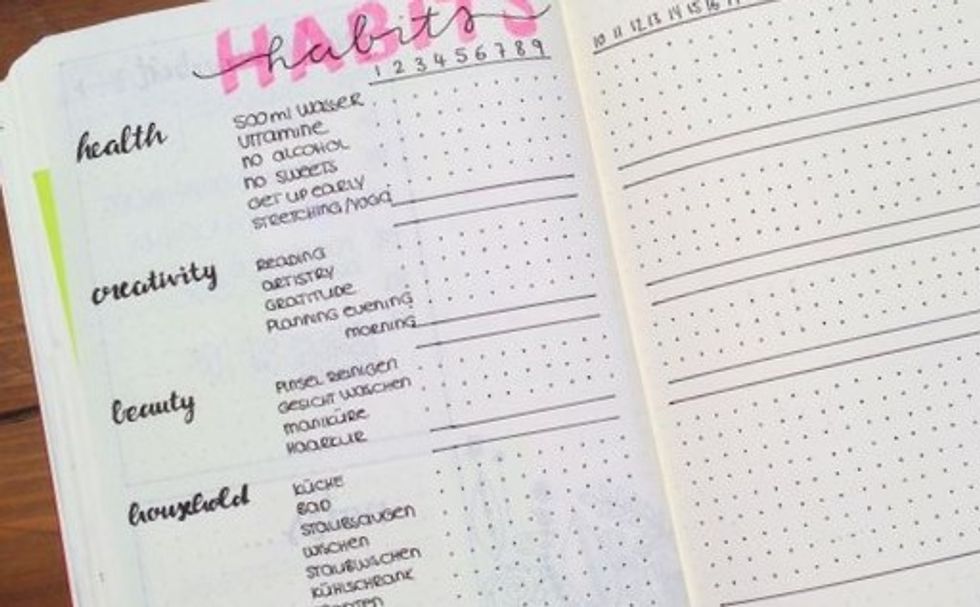 HABITS
habits
1 2 3 4 5 6 7 8 9
10 11 12 13 14 15 16
health
500ml WASSER
VITAMINE
NO ALCOHOL
NO SWEETS
GET UP EARLY
STRETCHING/YOGA
creativity
READING
ARTISTRY
GRATITUDE
PLANNING EVENING
MORNING
beauty
PINSEL REINIGEN
GESICHT WASCHEN
MANIKÜRE
HAARKUR
household
KÜCHE
BAD
STAUBSAUGEN
WISCHEN
STAUBWISCHEN
KÜHLSCHRANK